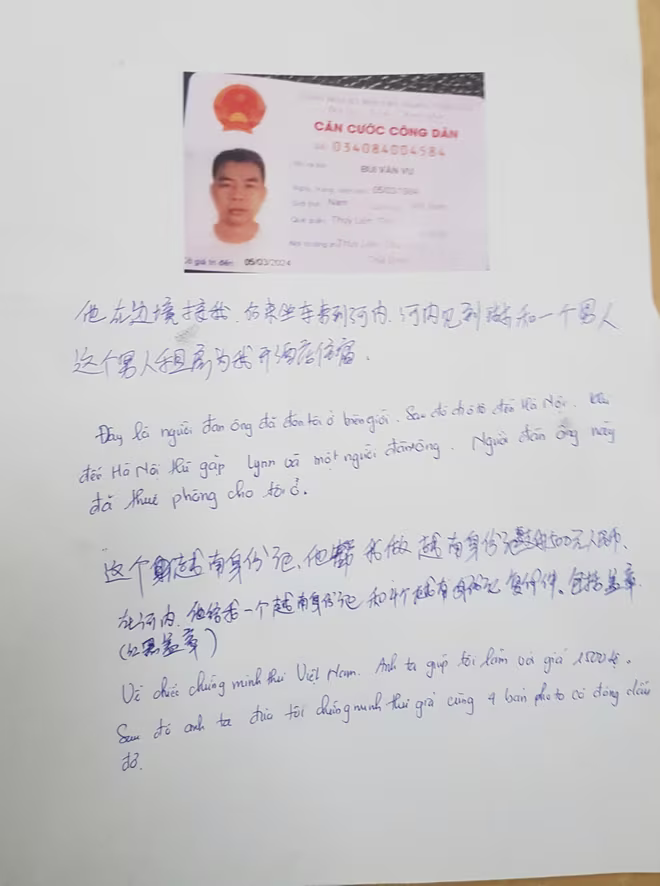 CĂN CƯỚC CÔNG DÂN
034084004584
BÙI VĂN VŨ
05/03/1984
Nam
Thụy Liên
Có giá trị đến: 05/03/2024
他在边境接我, 坐车到河内. 河内见到 和一个男人
这个男人 为我开酒店住宿.
Đây là người đàn ông đã đón tôi ở biên giới. Sau đó chở tôi đến Hà Nội. Khi
đến Hà Nội thì gặp Lynn và một người đàn ông. Người đàn ông này
đã thuê phòng cho tôi ở.
这个 越南身份证, 他帮我做越南身份证 500元人民币.
在河内. 他给我一个越南身份证和4个越南身份证复印件. 包括盖章.
(红 盖章)
Về chiếc chứng minh thư Việt Nam. Anh ta giúp tôi làm với giá 1500 tệ.
Sau đó anh ta đưa tôi chứng minh thư giả cùng 4 bản photo có đóng dấu
đỏ.